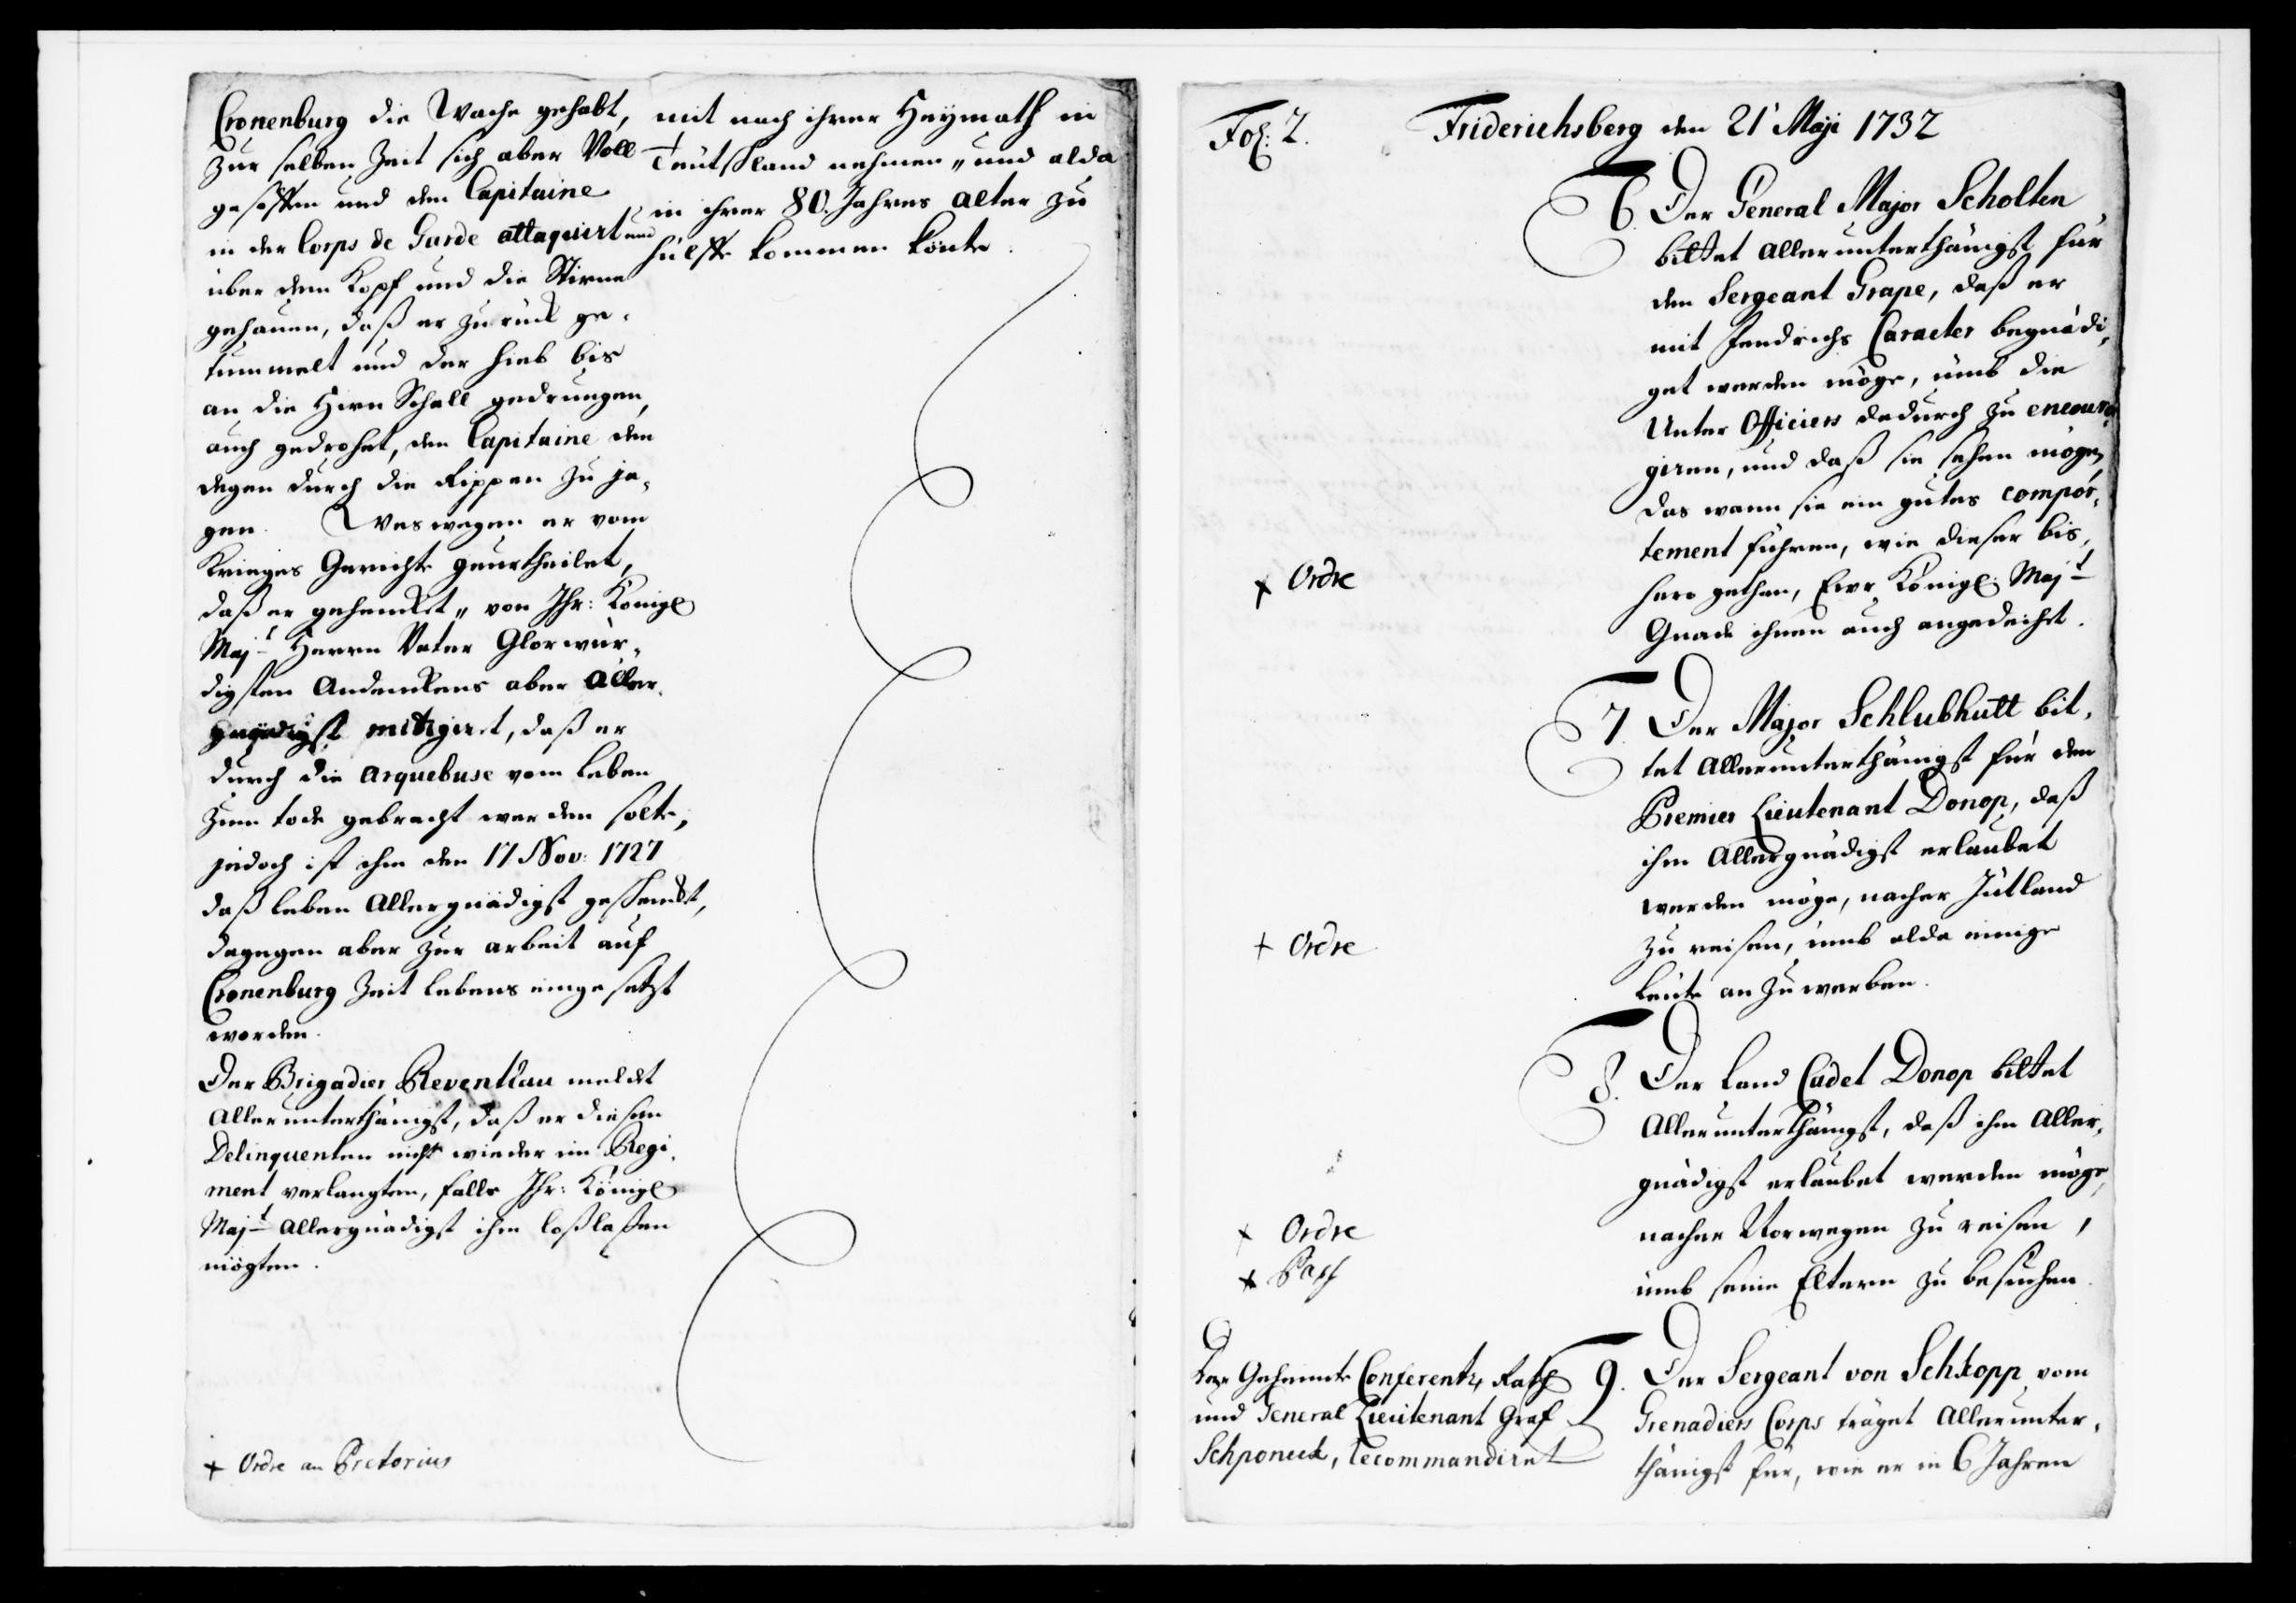 Cronenburg die Wache gehabt,
zur selben Zeit sich aber Voll
gesoffen und den Capitaine
in der Corps de Garde attaquirt und
über dem Kopf und die Stirne
gehauen, daß er zurück ge-
tummelt und der hieb bis
an die Hirn Schall gedrungen,
auch gedrohet, den Capitaine den
degen durch die Rippen zu ja-
gen. Weswegen er vom
Krieges Gerichte geurtheilet,
daß er gehencket, von Ihr: Königl
Majt Herrn Vater Glorwür-
digsten Andenckens aber Aller-
gnädigst mitigiret, daß er
durch die Arquebuse vom leben
zum tode gebracht werden solte,
jedoch ist ihm den 17 Nov: 1727
daß leben Allergnädigst geschenckt,
dagegen aber zur arbeit auf
Cronenburg Zeit lebens eingesetzt
worden.
Der Brigadier Reventlau meldet
Allerunterthänigst, daß er diesen
Delinquenten nicht wieder im Regi-
ment verlangten, falls Ihr: Königl
Majt Allergnädigst ihm loßlaßen
mögten.
+ Ordre an Pretorius
mit nach ihrer Heymath in
Teutschland nehmen, und alda
in ihrer 80. Jahres Alter zu
hülffe kommen könte.
Fol: 2.
Friderichsberg den 21t Maji 1732
6. Der General Major Scholten
bittet Allerunterthänigst für
den Sergeant Grape, daß er
mit Fendrichs Caracter begnädi-
get werden möge, umb die
Unter Officiers dadurch zu encoura-
giren, und daß sie sehen mögen,
das wann sie ein gutes compor-
tement führen, wie dieser bis-
hero gethan, Ewr Königl: Majt
Gnade ihnen auch angedeihet.
+ Ordre
7. Der Major Schlubhutt bit-
tet Allerunterthänigst für den
Premier Lieutenant Donop, daß
ihm Allergnädigst erlaubet
werden möge, nacher Jütland
zu reisen, umb alda einige
Leute an zu werben.
+ Ordre
8. Der Land Cadet Donop bittet
Allerunterthänigst, daß ihm Aller-
gnädigst erlaubet werden möge,
nacher Norwegen zu reisen,
umb seine Eltern zu besuchen.
+ Ordre
+ Paß
9. Der Sergeant von Schkopp vom
Grenadiers Corps träget Allerunter-
thänigst für, wie er in 6 Jahren
Der Geheimte Conferentz Rath
und General Lieutenant Graf
Schponeck, recommandiret